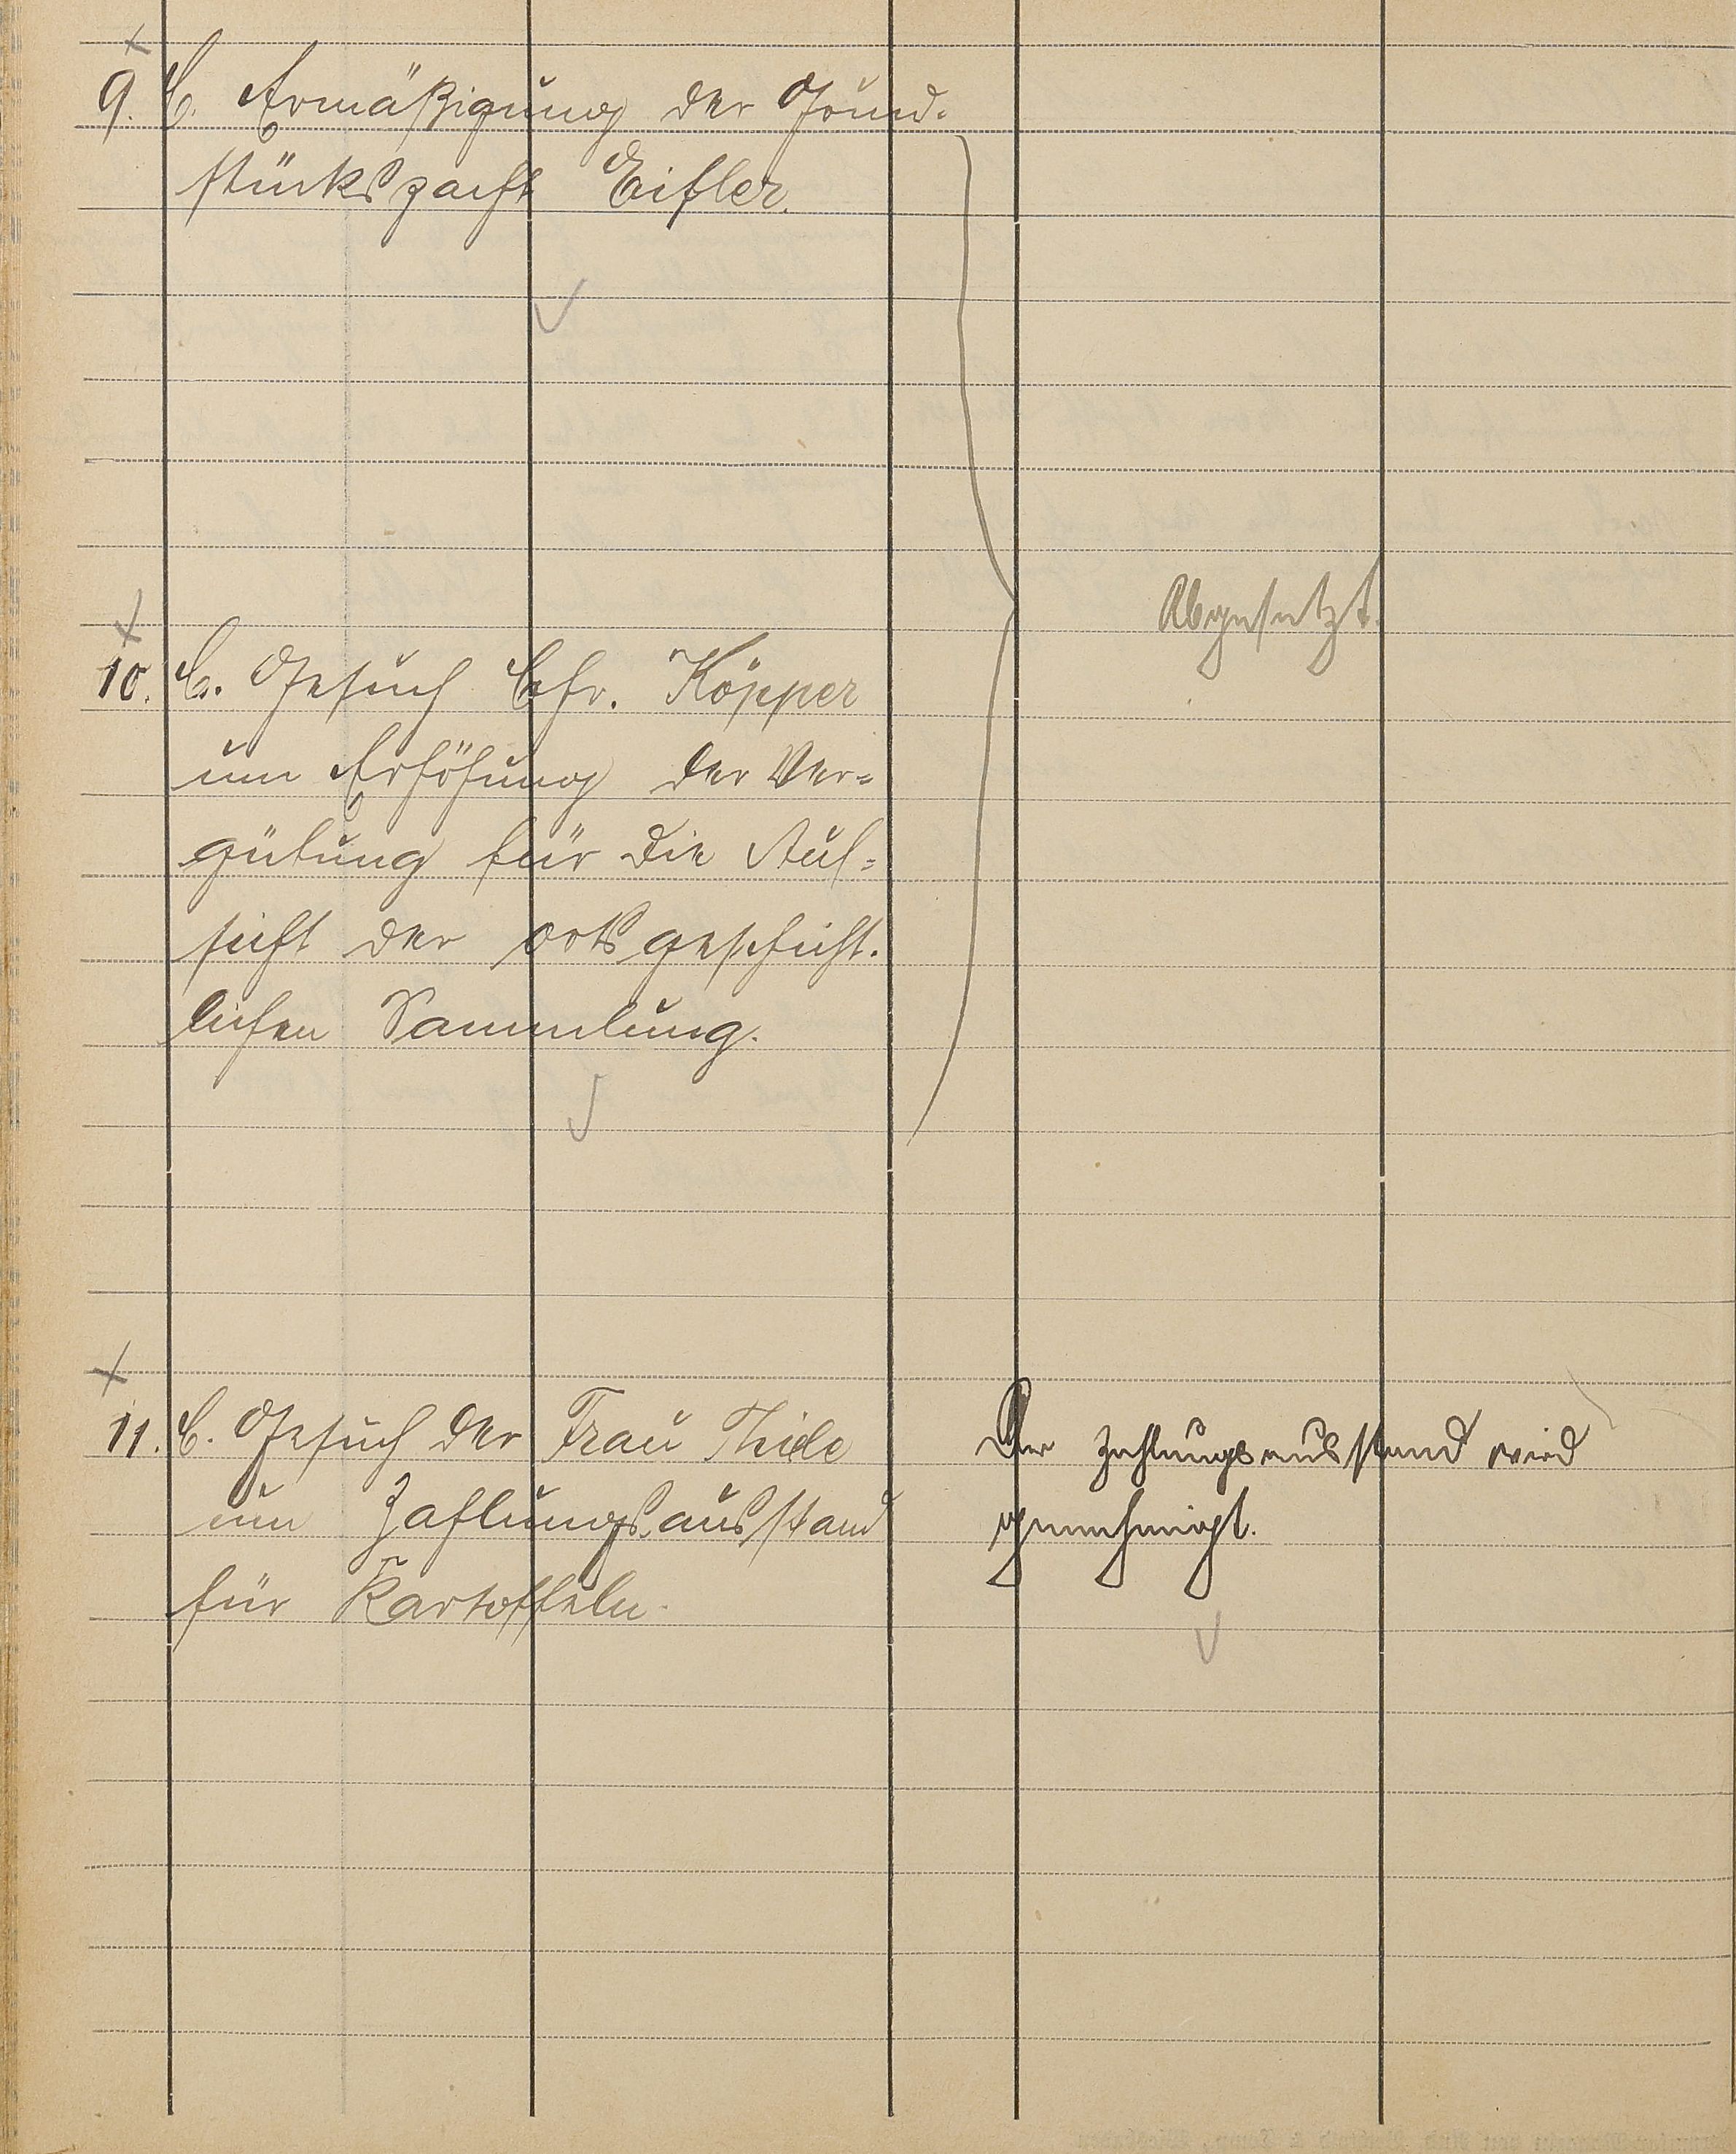 9. C. Ermäßigung der Grund-
stückspacht Eifler.
Abgesetzt.
10. C. Gesuch Chr. Köpper
um Erhöhung der Ver=
gütung für die Auf=
sicht der ortsgeschicht-
lichen Sammlung.
11. C. Gesuch der Frau Thiele
um Zahlungsausstand
für Kartoffeln.
Der Zahlungsausstand wird
genehmigt.